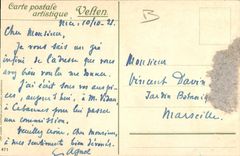 Carte postale
artistique
Velten.
Nice, 10/10-21.
Cher Monsieur,
Je vous sais un gré
infini de l'adresse que vous
avez bien voulu me donner.
J'ai écrit sous vos auspi-
ces, aujourd'hui, à M. Vidan
à Cabannes pour lui passer
une commission.
Veuillez croire, Cher Monsieur,
à mes sentiments bien dévoués.
Monsieur
Vincent Davin
Jardin Botanique
Marseille
471